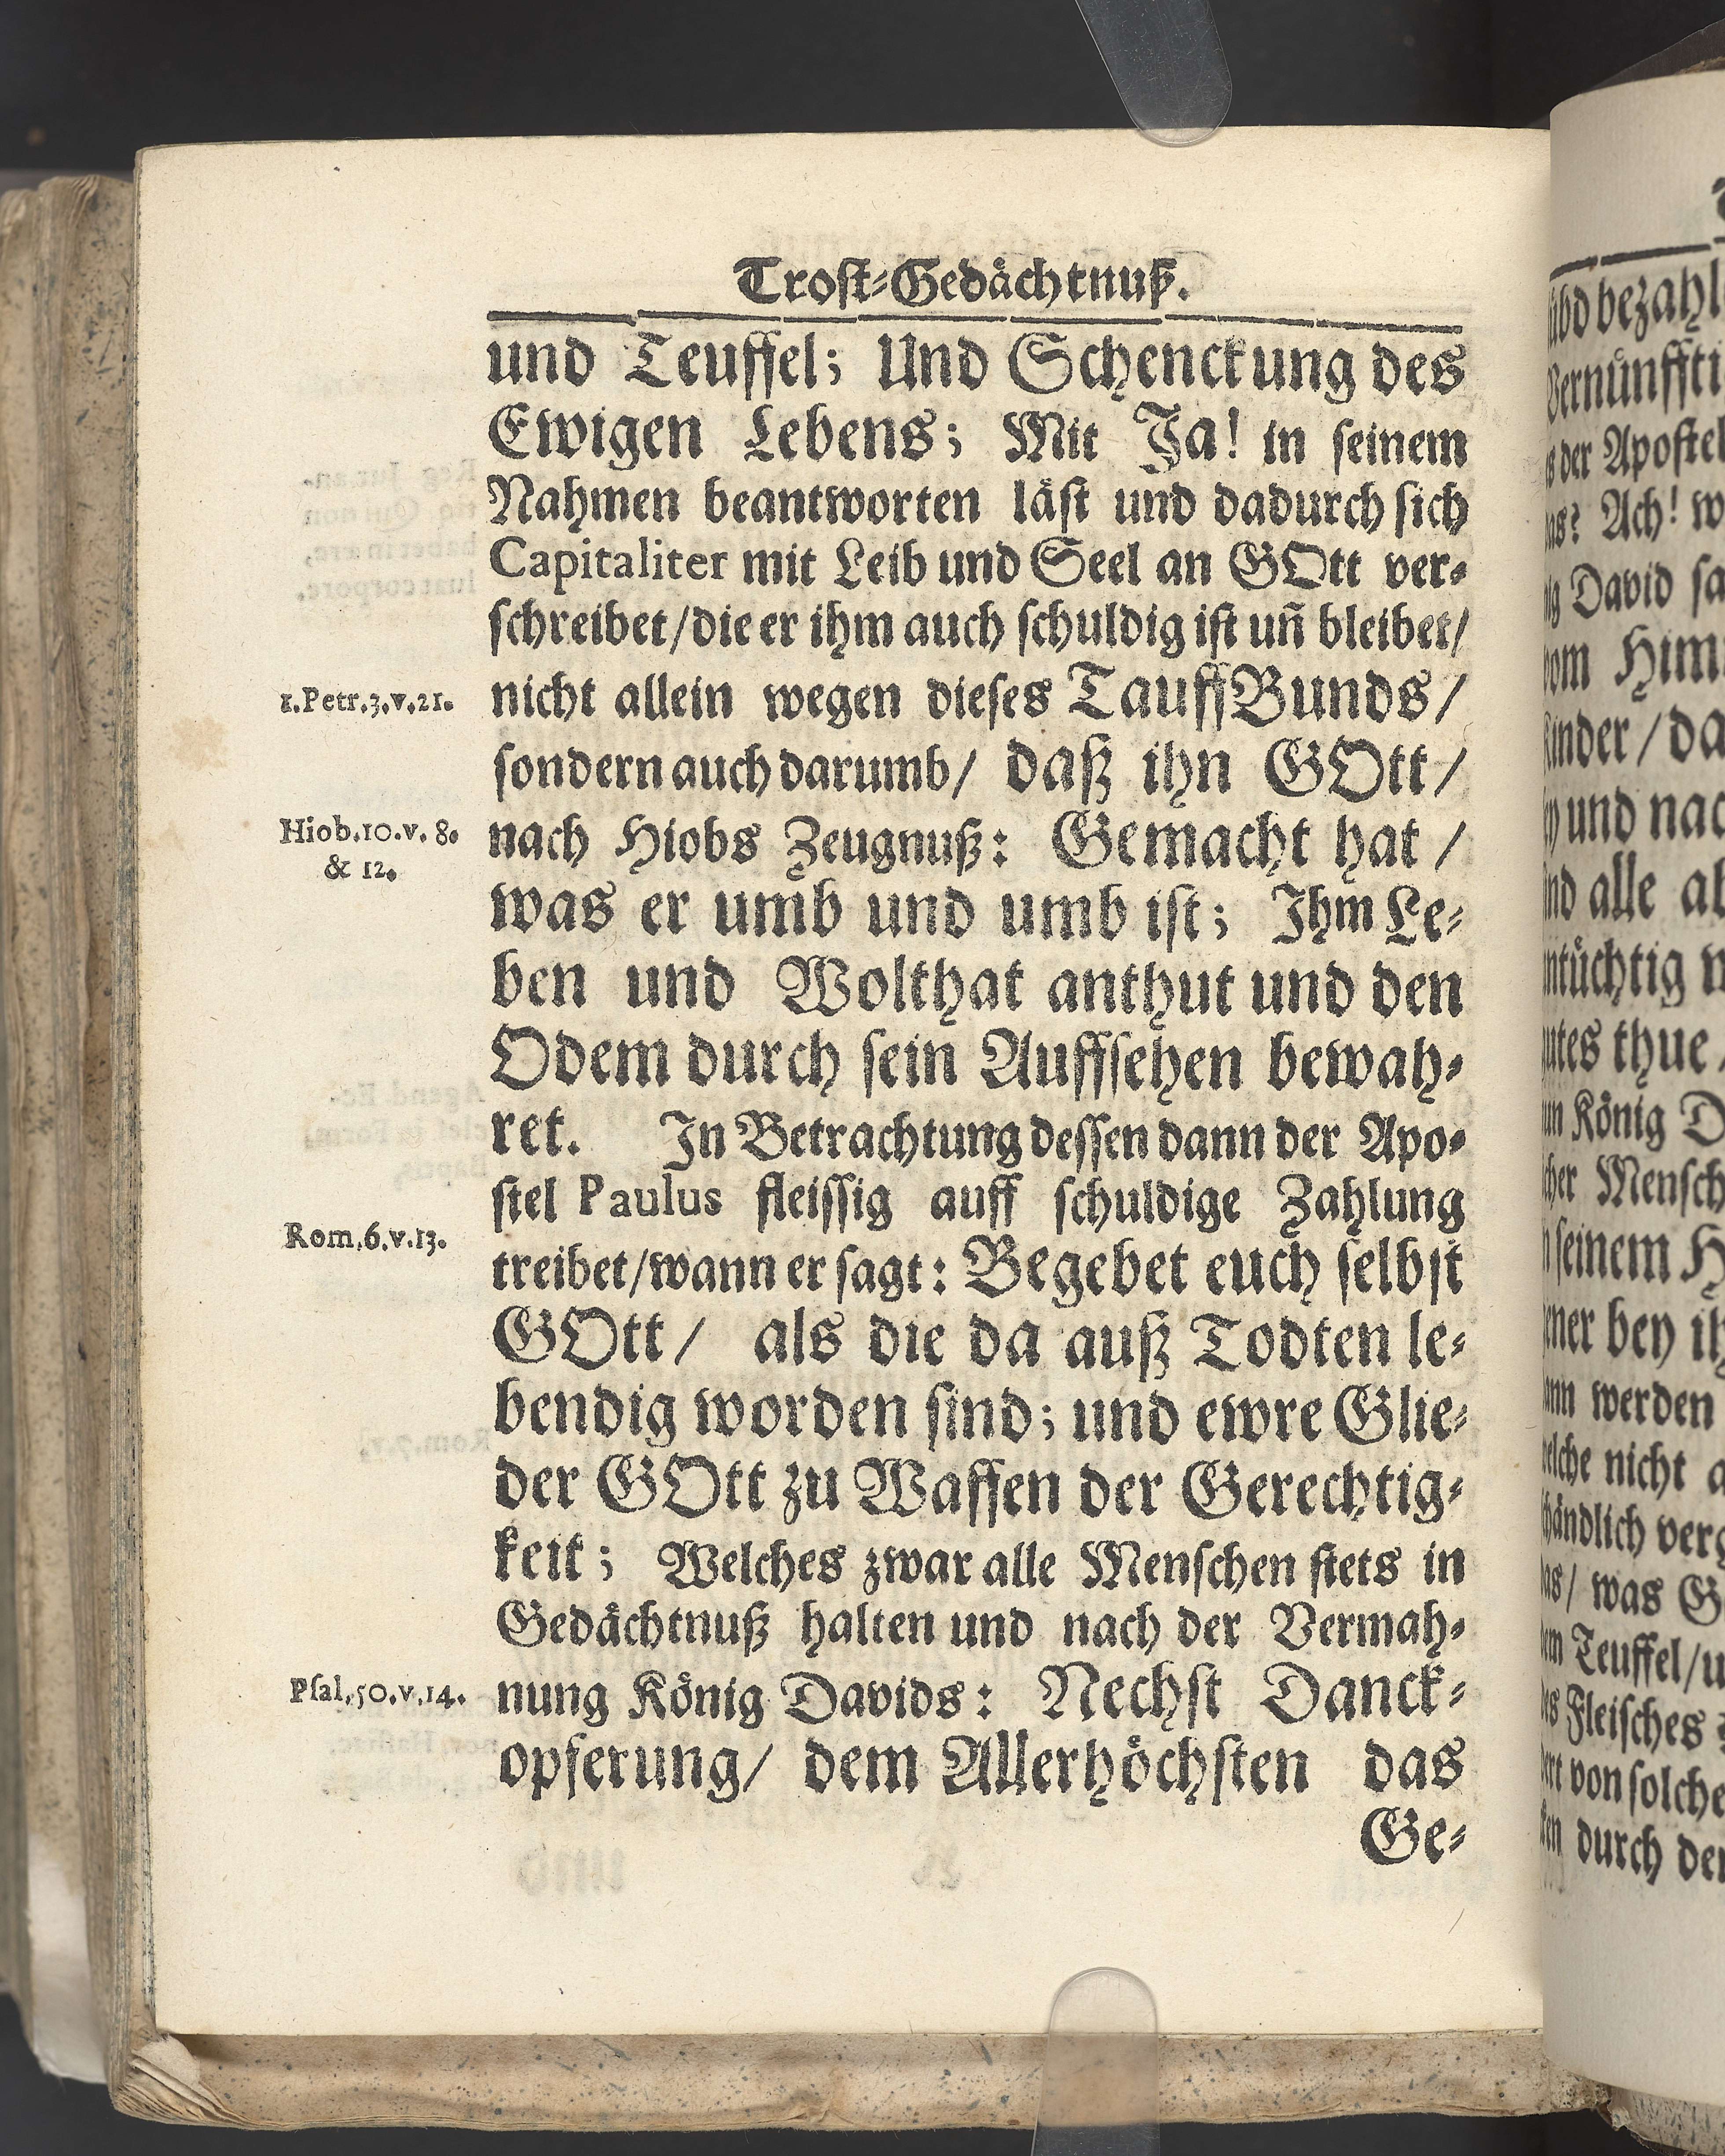 Trost-Gedächtnuß.
und Teuffel; Und Schenckung des
Ewigen Lebens; Mit Ja! in seinem
Nahmen beantworten läst und dadurch sich
Capitaliter mit Leib und Seel an GOtt ver-
schreibet/die er ihm auch schuldig ist uñ bleibet/
1.Petr.3.v.21.
nicht allein wegen dieses TauffBunds/
sondern auch darumb/ daß ihn GOtt/
Hiob.10.v. 8.
& 12.
nach Hiobs Zeugnuß: Gemacht hat /
was er umb und umb ist; Ihm Le-
ben und Wolthat anthut und den
Odem durch sein Auffsehen bewah-
ret. In Betrachtung dessen dann der Apo-
stel Paulus fleissig auff schuldige Zahlung
Rom.6.v.13.
treibet/wann er sagt: Begebet euch selbst
GOtt/ als die da auß Todten le-
bendig worden sind; und ewre Glie-
der GOtt zu Waffen der Gerechtig-
keit; Welches zwar alle Menschen stets in
Gedächtnuß halten und nach der Vermah-
Psal.50.v.14.
nung König Davids: Nechst Danck-
opferung/ dem Allerhöchsten das
Ge-
bezahl
der Apostel
Ach! w
David sa
und nac
alle
thue
König
Mensch
seinem
bey
werden
nicht
was G
Teuffel/
Fleisches
von solche
durch